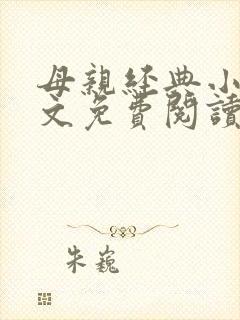 母親經典小
文免費閱讀
朱巍